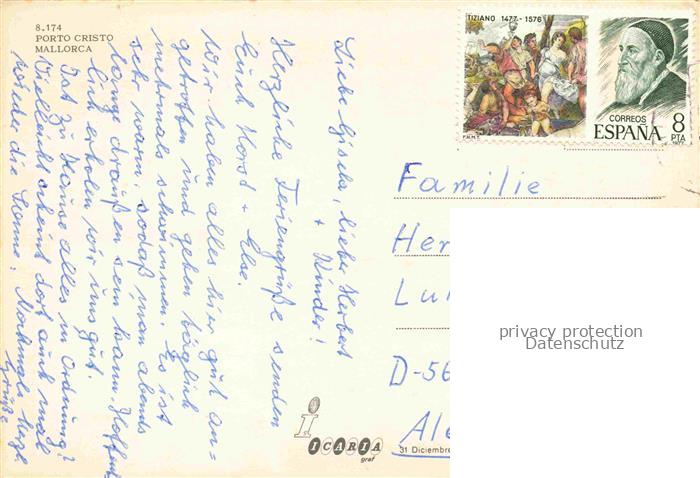 8.174
PORTO CRISTO
MALLORCA
Liebe Gisela, lieber Herbert
+ Kinder!
Herzliche Feriengrüße senden
Euch Horst + Else.
Wir haben alles hier gut an-
getroffen und gehen täglich
mehrmals schwimmen. Es ist
sehr warm, sodaß man abends
lange draußen sein kann. Hoffent-
lich erholen wir uns gut.
Ist zu Hause alles in Ordnung?
Vielleicht scheint dort auch mal
wieder die Sonne. Nochmals herzl.
Grüße
TIZIANO 1477-1576
F.N.M.T.
CORREOS
ESPAÑA
8
PTA
1977
Familie
Her
Lu
D-56
Ale
privacy protection
Datenschutz
i
ICARIA
graf
31 Diciembre